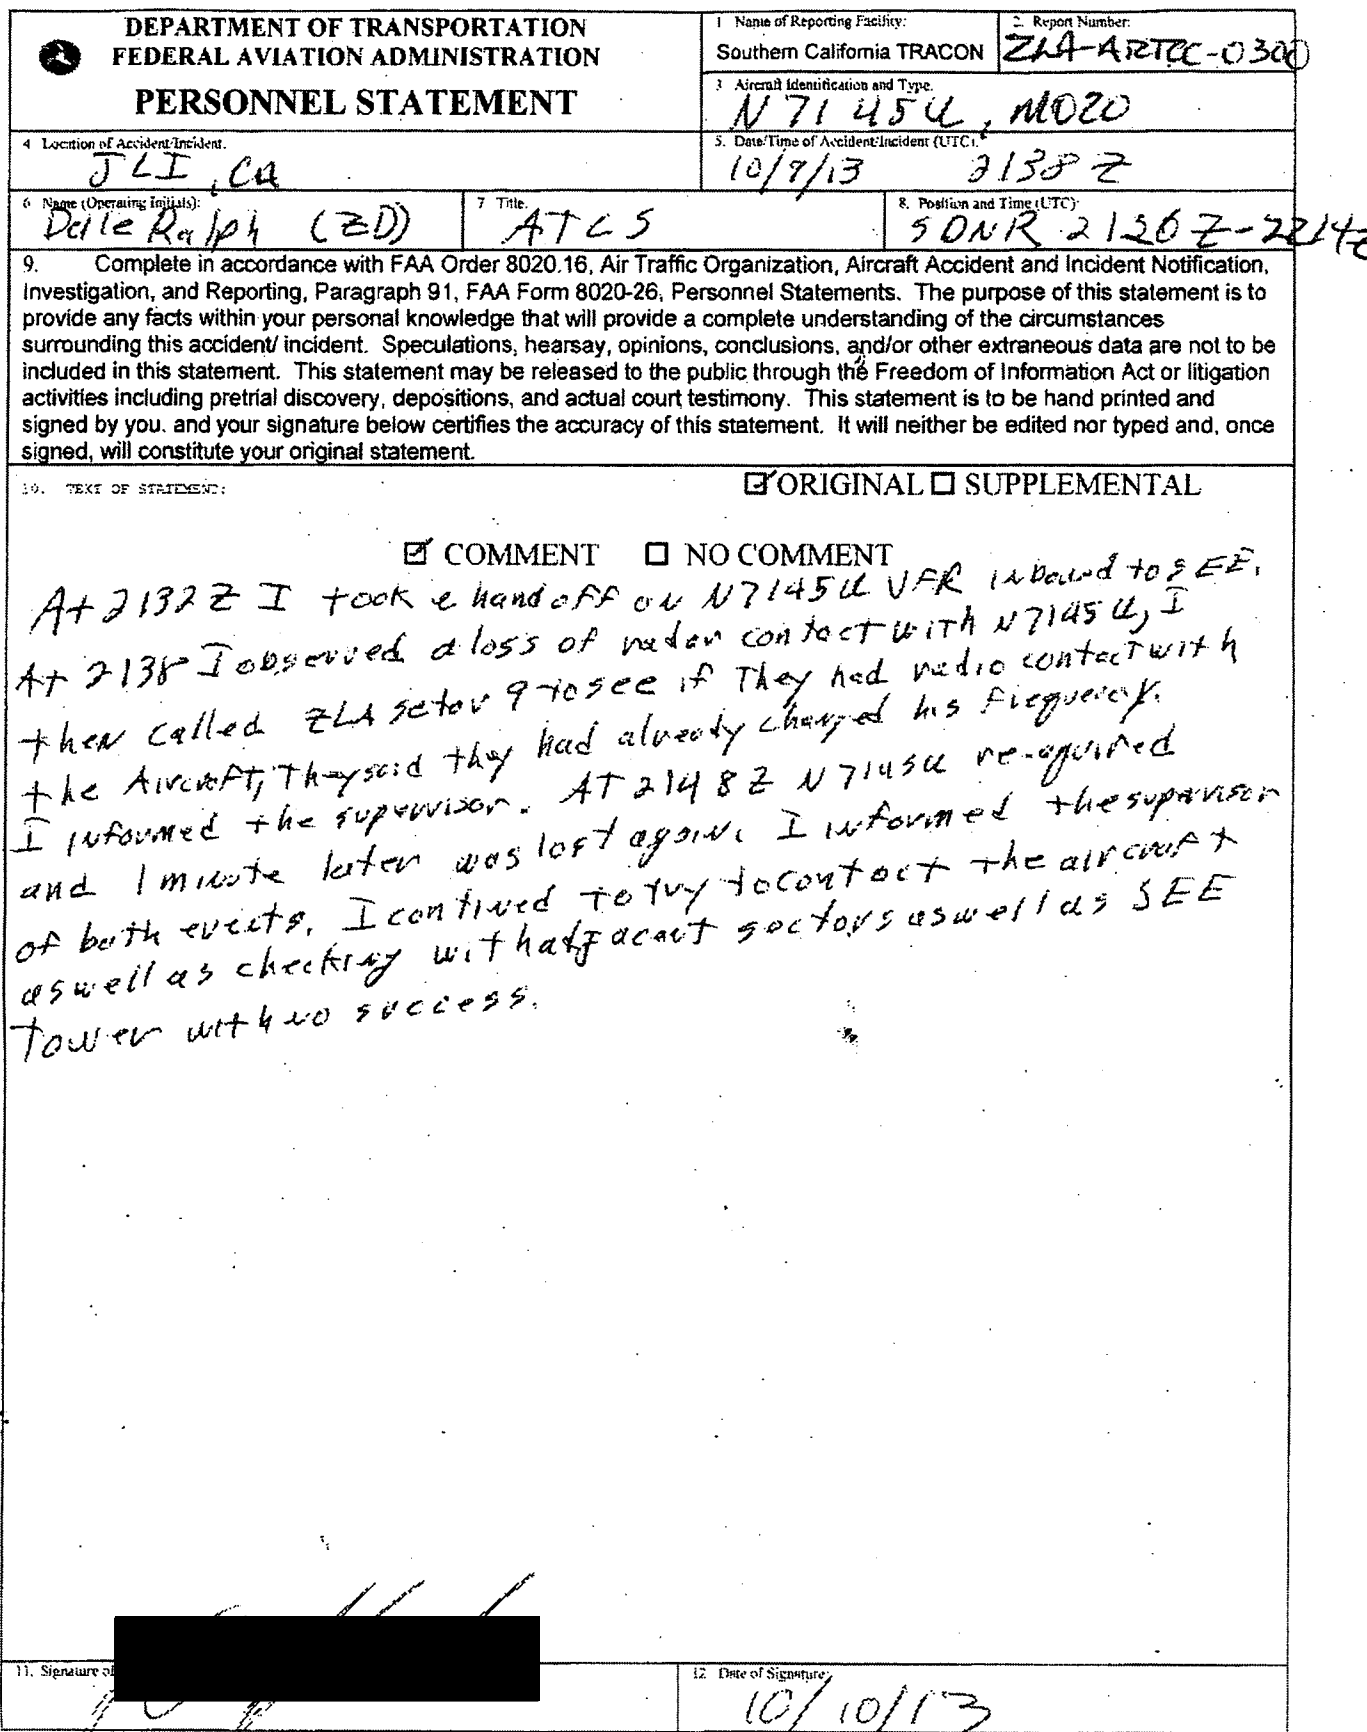 DEPARTMENT OF TRANSPORTATION
FEDERAL AVIATION ADMINISTRATION
PERSONNEL STATEMENT
1 Name of Reporting Facility:
Southern California TRACON
2. Report Number:
ZLA-ARTCC-0300
3 Aircraft Identification and Type.
N7145U, MO20
4 Location of Accident/Incident.
JLI, Ca
5. Date/Time of Accident/Incident (UTC).
10/7/13 2138Z
6 Name (Operating Initials):
Dale Ralph (ZD)
7 Title.
ATCS
8. Position and Time (UTC)
SDNR 2120Z-2214Z
9. Complete in accordance with FAA Order 8020.16, Air Traffic Organization, Aircraft Accident and Incident Notification,
Investigation, and Reporting, Paragraph 91, FAA Form 8020-26, Personnel Statements. The purpose of this statement is to
provide any facts within your personal knowledge that will provide a complete understanding of the circumstances
surrounding this accident/ incident. Speculations, hearsay, opinions, conclusions, and/or other extraneous data are not to be
included in this statement. This statement may be released to the public through the Freedom of Information Act or litigation
activities including pretrial discovery, depositions, and actual court testimony. This statement is to be hand printed and
signed by you. and your signature below certifies the accuracy of this statement. It will neither be edited nor typed and, once
signed, will constitute your original statement.
10. TEXT OF STATEMENT:
☑ ORIGINAL ☐ SUPPLEMENTAL
☑ COMMENT ☐ NO COMMENT
At 2132Z I took a handoff on N7145U VFR inbound to SEE.
At 2138 I observed a loss of radar contact with N7145U, I
then called ZLA setor 9 to see if They had radio contact with
the Aircraft, They said they had already changed his frequency.
I informed the supervisor. AT 2148Z N7145U re-aquired
and 1 minute later was lost again. I informed the supervisor
of both events. I contined to try to contact the aircraft
as well as checking with adjacent sectors as well as SEE
Tower with no success.
11. Signature of
12 Date of Signature:
10/10/13